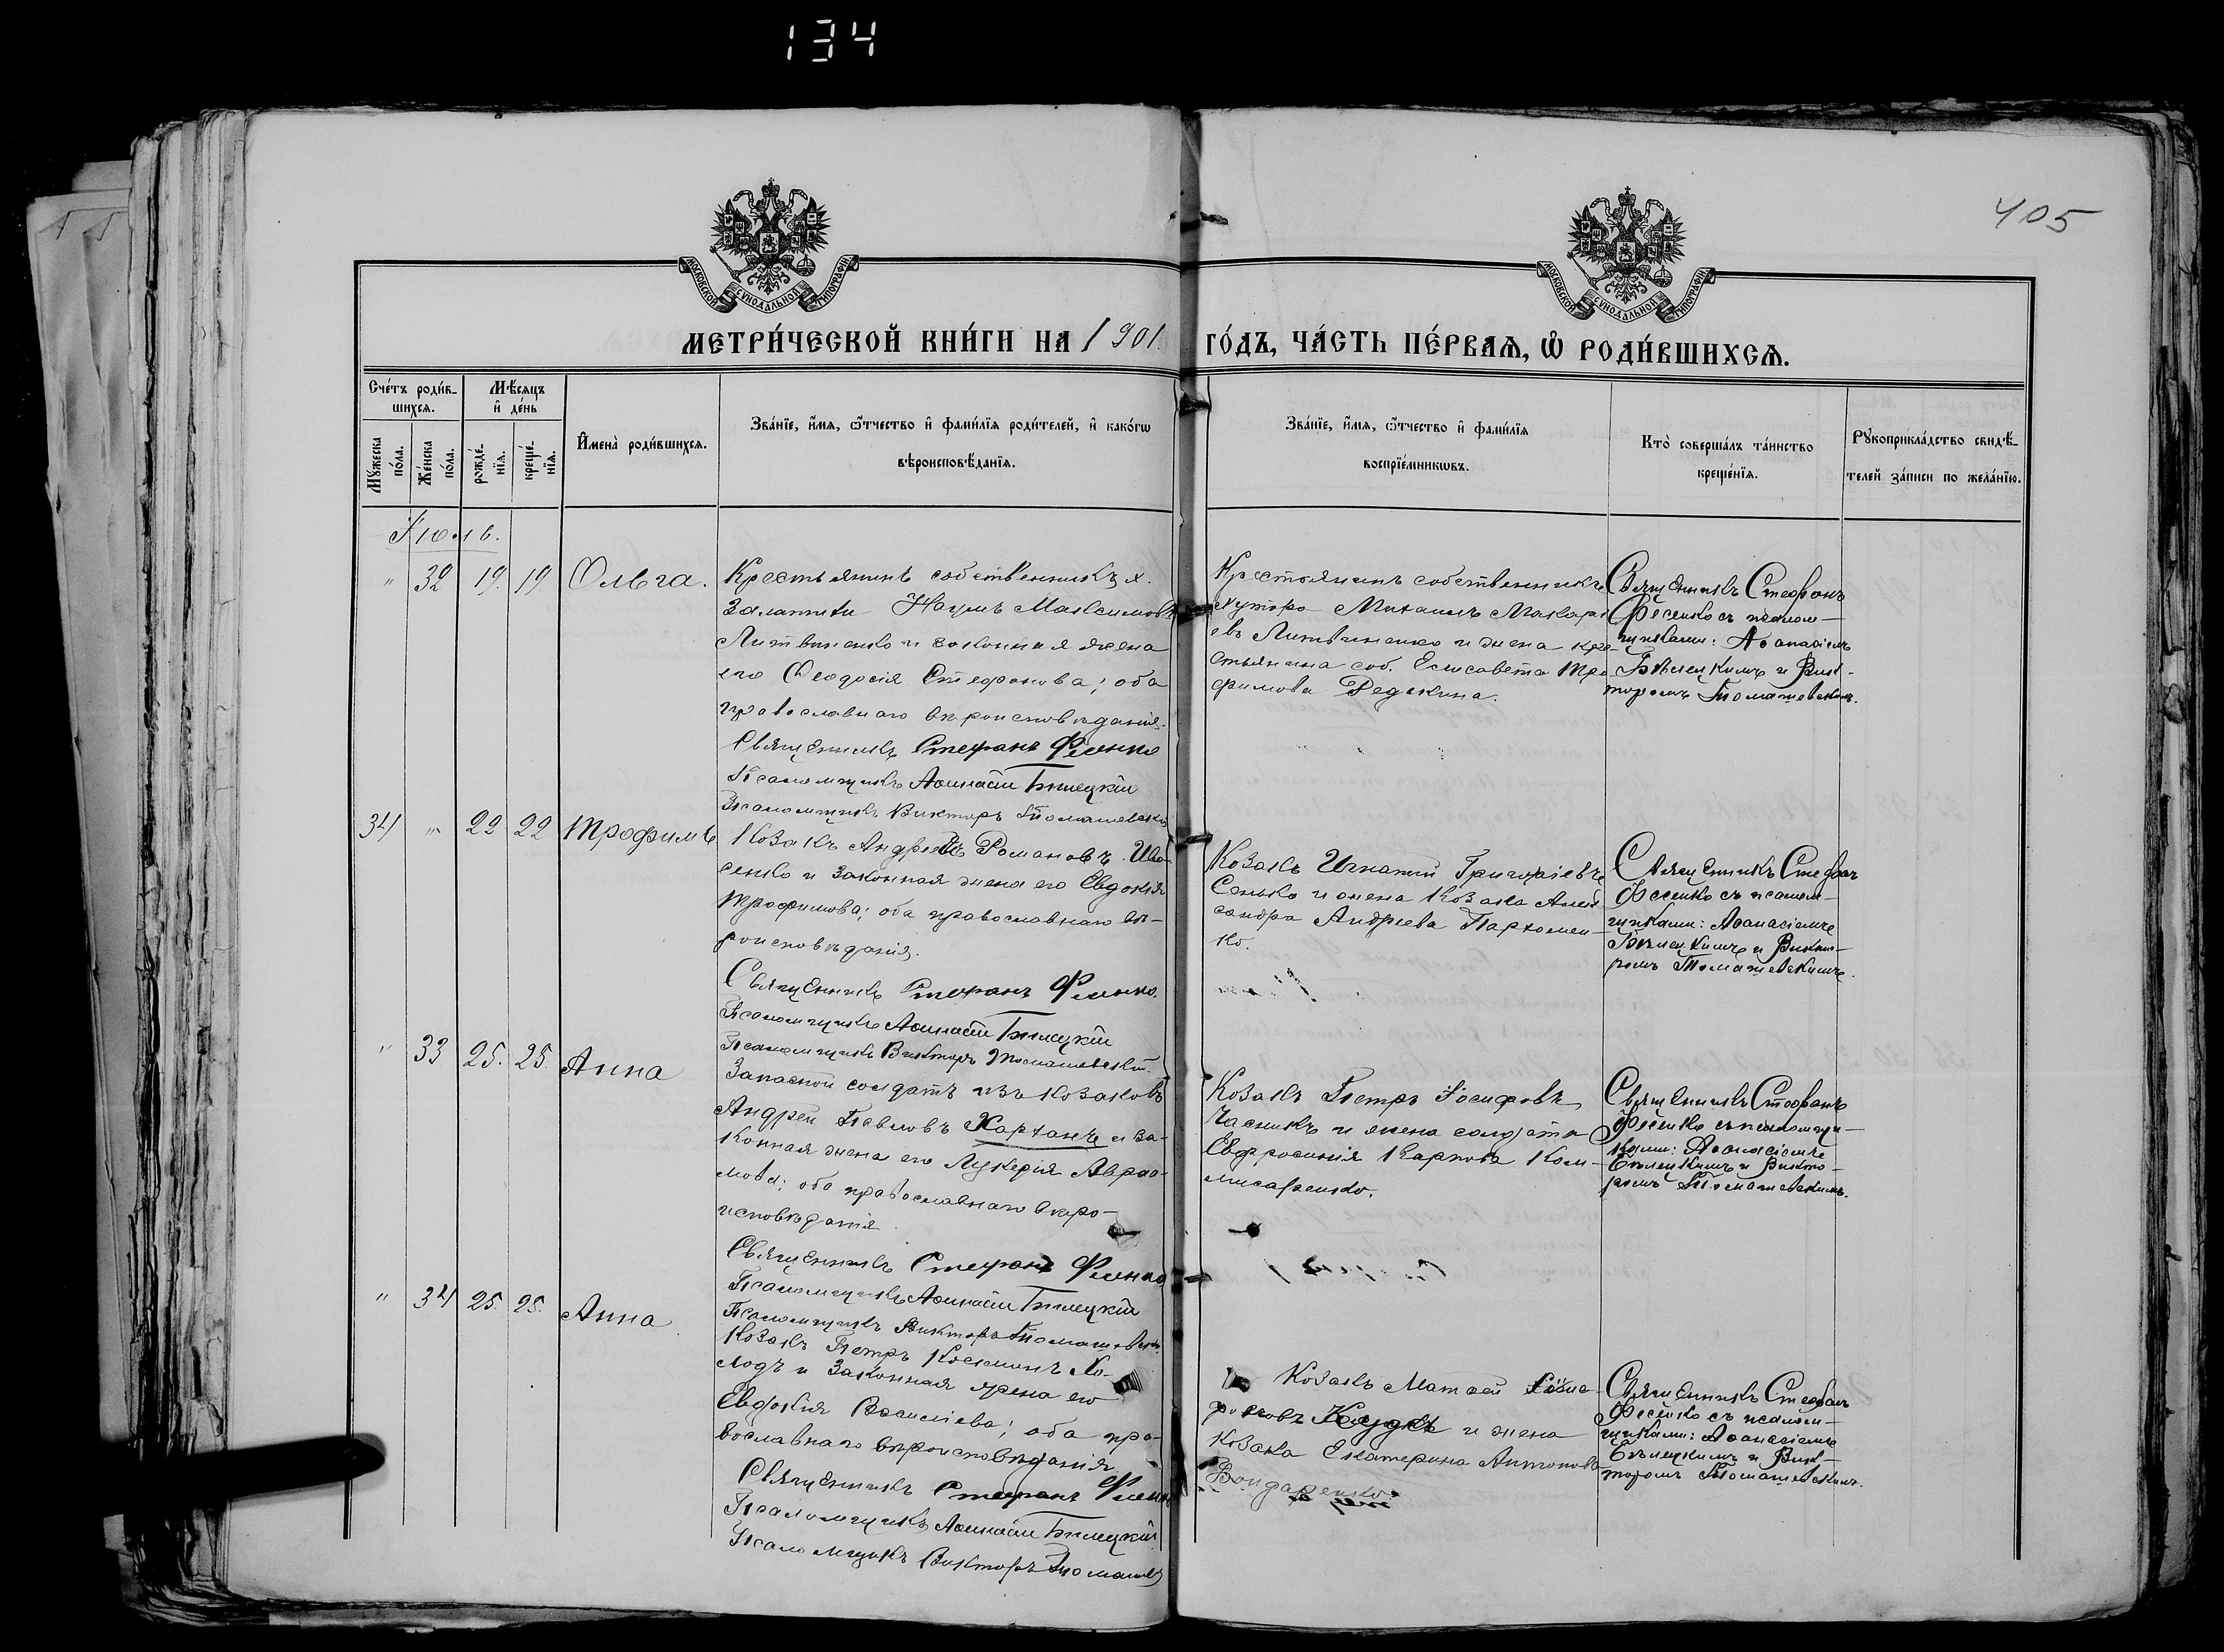 134
405
МОСКОВСКОЙ СѴНОДАЛЬНОЙ ТИПОГРАФІИ
МОСКОВСКОЙ СѴНОДАЛЬНОЙ ТИПОГРАФІИ
МЕТРИ́ЧЕСКОЙ КНИ́ГИ НА 1901
ГО́ДЪ, ЧА́СТЬ ПЕ́РВАѦ, Ѽ РОДИ́ВШИХСѦ.
Сче́тъ роди́в-
шихсѧ.
Мѣ́сѧцъ
и҆ де́нь
Мꙋ́жеска
по́ла.
Же́нска
по́ла.
рожде́-
нїѧ.
креще́-
нїѧ.
И҆мена̀ роди́вшихсѧ.
Зва́нїе, и҆́мѧ, ѻ҆́тчество и҆ фами́лїѧ роди́телей, и҆ како́гѡ
вѣроисповѣ́данїѧ.
Зва́нїе, и҆́мѧ, ѻ҆́тчество и҆ фами́лїѧ
воспрїе́мникѡвъ.
Кто̀ соверша́лъ та́инство
креще́нїѧ.
Рꙋкоприкла́дство свидѣ́-
телей за́писи по жела́нїю.
Іюль.
" 32 19. 19 Ольга.
Крестьянинъ собственникъ х.
Наумъ Максимовъ
Литвиненко и законная жена
его Ѳеодосія Стефанова; оба
православнаго вѣроисповѣданія.
Священникъ Стефанъ Фесенко
Псаломщикъ Аѳанасій Бѣлецкій
Псаломщикъ Викторъ Томашевскій
Крестьянинъ собственникъ
хутора Михаилъ Макарі-
евъ Литвиненко и жена кре-
стьянина соб. Елисавета Тро-
фимова Редькина.
Священникъ Стефанъ
Фесенко съ псалом-
щиками: Аѳанасіемъ
Бѣлецкимъ и Вик-
торомъ Томашевскимъ.
34 " 22 22 Трофимъ
Козакъ Андрей Романовъ
сенко и законная жена его Евдокія
Трофимова; оба православнаго вѣ-
роисповѣданія.
Священникъ Стефанъ Фесенко.
Псаломщикъ Аѳанасій Бѣлецкій
Псаломщикъ Викторъ Томашевскій.
Козакъ Игнатій Григоріевъ
Сенько и жена козака Алек-
сандра Андреева Пархомен-
ко.
Священникъ Стефанъ
Фесенко съ псалом-
щиками: Аѳанасіемъ
Бѣлецкимъ и Викто-
ромъ Томашевскимъ.
" 33 25. 25. Анна
Запасной солдатъ изъ козаковъ
Андрей Павловъ Харханъ и за-
конная жена его Лукерія Авраа-
мова; оба православнаго вѣро-
исповѣданія.
Священникъ Стефанъ Фесенко
Псаломщикъ Аѳанасій Бѣлецкій
Псаломщикъ Викторъ Томашевскій.
Козакъ Петръ Іосифовъ
Часникъ и жена солдата
Евфросинія Карпова Ком-
мисаренко.
Священникъ Стефанъ
Фесенко съ псаломщи-
ками: Аѳанасіемъ
Бѣлецкимъ и Викто-
ромъ Томашевскимъ.
" 34 25. 25. Анна
Козакъ Петръ Косминъ Хо-
лодъ и законная жена его
Евдокія Василіева; оба пра-
вославнаго вѣроисповѣданія.
Священникъ Стефанъ Фесенко
Псаломщикъ Аѳанасій Бѣлецкій
Псаломщикъ Викторъ Томашев
Козакъ Матѳей
и жена
козака Екатерина Антонова
Бондаренко.
Священникъ Стефанъ
Фесенко съ псалом-
щиками: Аѳанасіемъ
Бѣлецкимъ и Вик-
торомъ Томашевскимъ.